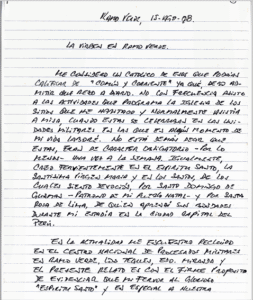 RAMO VERDE, 15-AGO-08.
LA VIRGEN EN RAMO VERDE.
ME CONSIDERO UN CATÓLICO DE ESOS QUE PODRÍAN
CALIFICAR DE "COMÚN Y CORRIENTE" YA QUE, DEBO AD-
MITIR QUE REZO A DIARIO, NO CON FRECUENCIA ASISTO
A LAS ACTIVIDADES QUE PROGRAMA LA IGLESIA DE LOS
SITIOS QUE HE HABITADO Y NORMALMENTE ASISTÍA
A MISA, CUANDO ESTAS SE CELEBRABAN EN LAS UNI-
DADES MILITARES, EN LAS QUE EN ALGÚN MOMENTO DE
MI VIDA LABORÉ. NO ESTÁ DEMÁS DECIR QUE
ESTAS, ERAN DE CARÁCTER OBLIGATORIO - POR LO
MENOS - UNA VEZ A LA SEMANA. IGUALMENTE,
CREO FERVIENTEMENTE EN EL ESPÍRITU SANTO, LA
SANTÍSIMA VIRGEN MARÍA Y EN LOS SANTOS, DE LOS
CUALES SIENTO DEVOCIÓN, POR SANTO DOMINGO DE
GUZMÁN - PATRONO DE MI PUEBLO NATAL - Y POR SANTA
ROSA DE LIMA, DE QUIEN APRENDÍ SUS
DURANTE MI ESTADÍA EN LA CIUDAD CAPITAL DEL
PERÚ.
EN LA ACTUALIDAD ME ENCUENTRO RECLUIDO
EN EL CENTRO NACIONAL DE PROCESADOS MILITARES
EN RAMO VERDE, LOS TEQUES, EDO. MIRANDA Y
EL PRESENTE RELATO ES CON EL FIRME PROPÓSITO
DE EVIDENCIAR QUE MI FE
"ESPÍRITU SANTO" Y EN ESPECIAL A NUESTRA